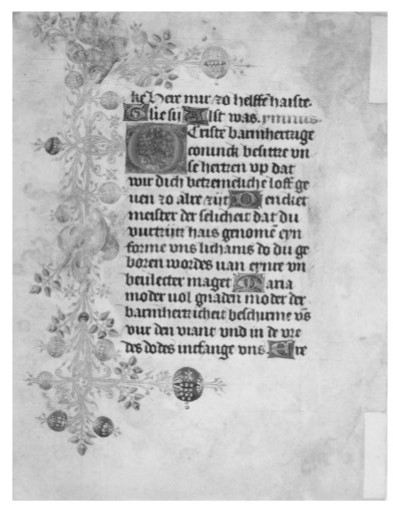 ke Here mur zo helffe haiste.
Glie sij Alst was. ymnus
O Criste barmhertzige
coninck besitze vn
se hertzen vp dat
wir dich betzemeliche loff ge
uen zo alre zijt Gencket
meister der selicheit dat du
vurtzijtz hais genomē eyn
forme vns lichams do du ge
boren wordes uan eynre vn
beulecter maget Maria
moder uol gnaden moder der
barmhertzicheit beschirme vs
vur den viant vnd in de vre
des dodes intfange vns Ere